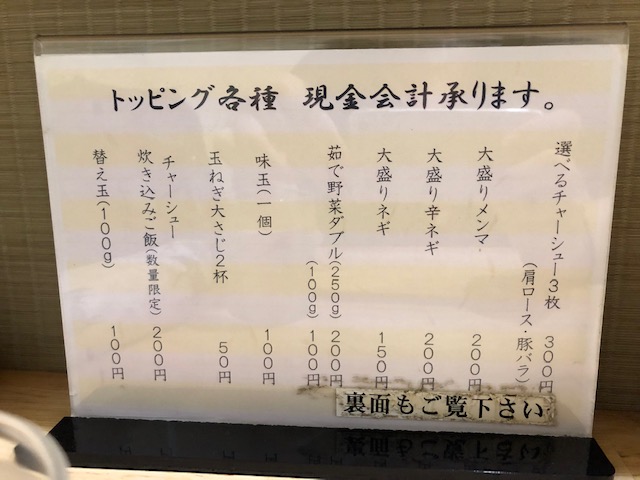 トッピング各種 現金会計承ります。
選べるチャーシュー3枚 300円
(肩ロース・豚バラ)
大盛りメンマ 200円
大盛り辛ネギ 200円
大盛りネギ 150円
茹で野菜ダブル(250g) 200円
(100g) 100円
味玉(一個) 100円
玉ねぎ大さじ2杯 50円
チャーシュー
炊き込みご飯(数量限定) 200円
替え玉(100g) 100円
裏面もご覧下さい